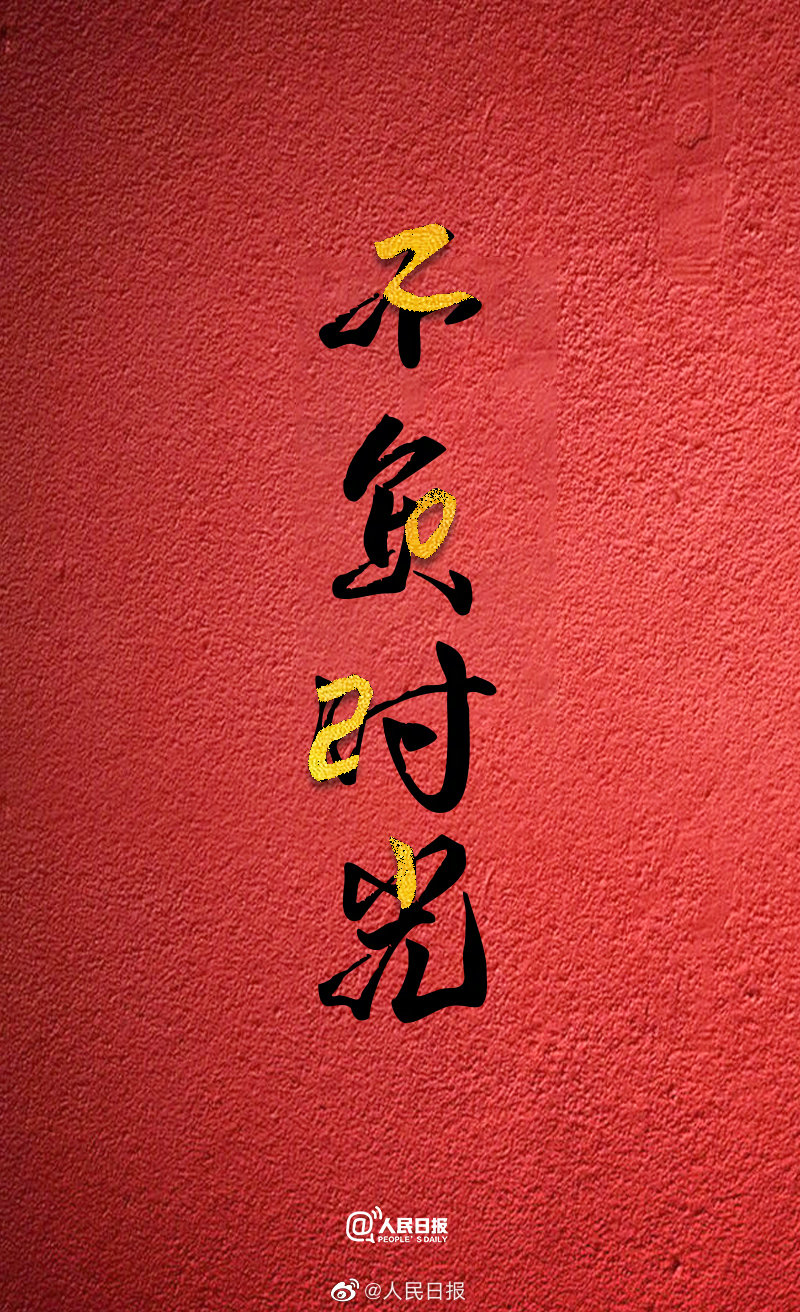 不负时光
@人民日报
PEOPLE'S DAILY
@人民日报